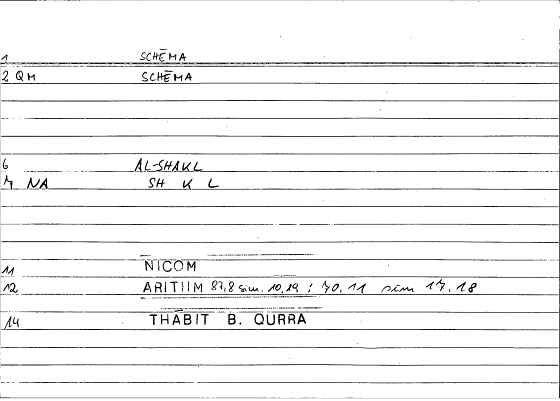 1 SCHĒMA
2 QM SCHĒMA
6 AL-SHAKL
7 NA SH K L
11 NICOM
12 ARITHM 87,8 sim. 10,19 : 70.11 sim 17.18
14 THĀBIT B. QURRA